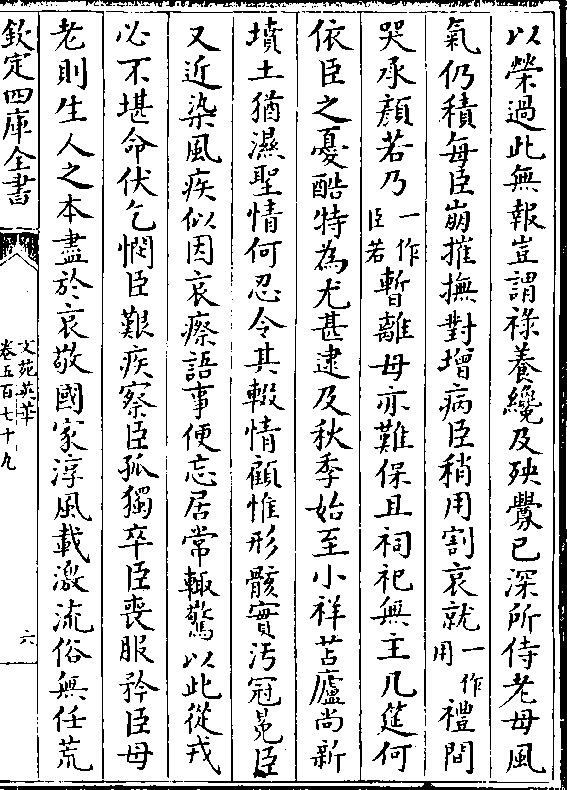 以榮過此無報豈謂祿養纔及殃舋已深所侍老母風
氣仍積每臣崩摧撫對增病臣稍用割哀就一作用禮間
哭承顏若乃一作臣若暫離母亦難保且祠祀無主几筵何
依臣之憂酷特為尤甚逮及秋季始至小祥苫廬尚新
墳土猶濕聖情何忍令其輟情顧惟形骸實汚冠冕臣
又近染風疾似因哀瘵語事便忘居常輙驚以此從戎
必不堪命伏乞憫臣艱疾察臣孤獨卒臣喪服矜臣母
老則生人之本盡於哀敬國家淳風載激流俗無任荒
欽定四庫全書
文苑英華
卷五百七十九
六